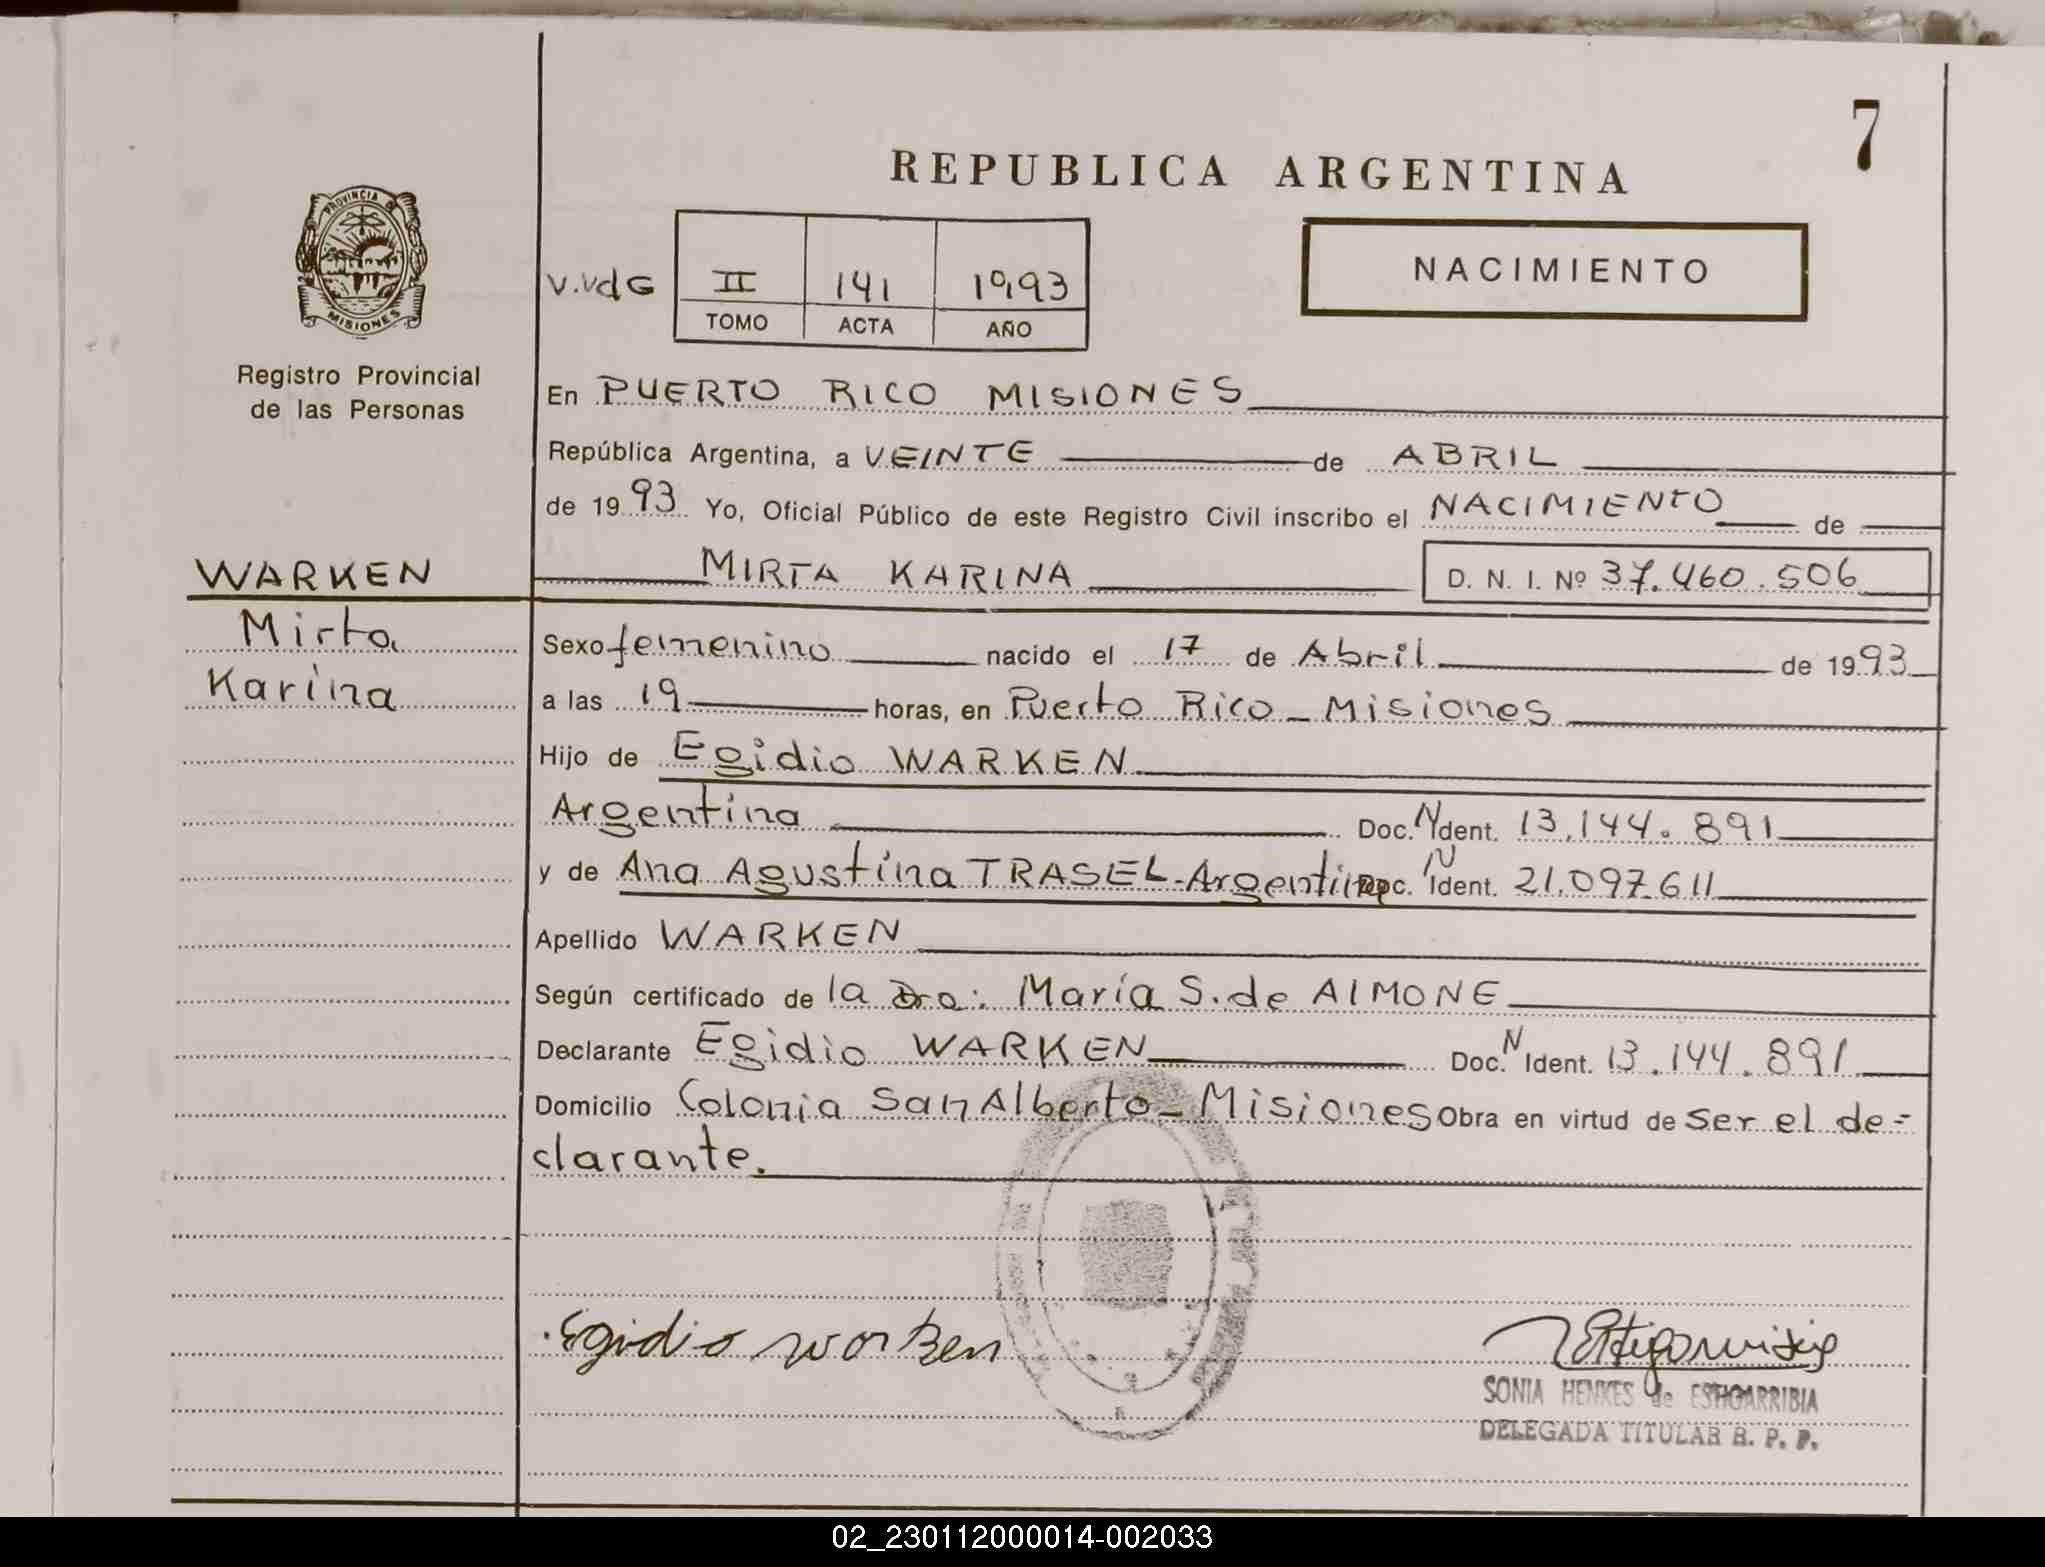 7
REPUBLICA ARGENTINA
PROVINCIA DE
MISIONES
Registro Provincial
de las Personas
V.VdG II 141 1993
TOMO ACTA AÑO
NACIMIENTO
En PUERTO RICO MISIONES
República Argentina, a VEINTE de ABRIL
de 1993 Yo, Oficial Público de este Registro Civil inscribo el NACIMIENTO de
WARKEN
Mirta
Karina
MIRTA KARINA D. N. I. Nº 37.460.506
Sexo femenino nacido el 17 de Abril de 1993
a las 19 horas, en Puerto Rico - Misiones
Hijo de Egidio WARKEN
Argentina Doc. N Ident. 13.144.891
y de Ana Agustina TRASEL-Argentina Doc. N Ident. 21.097.611
Apellido WARKEN
Según certificado de la Dra: María S. de AIMONE
Declarante Egidio WARKEN Doc. N Ident. 13.144.891
Domicilio Colonia San Alberto - Misiones Obra en virtud de ser el de-
clarante.
Egidio Warken
SONIA HENKES de ESTIGARRIBIA
DELEGADA TITULAR R. P. P.
02_230112000014-002033